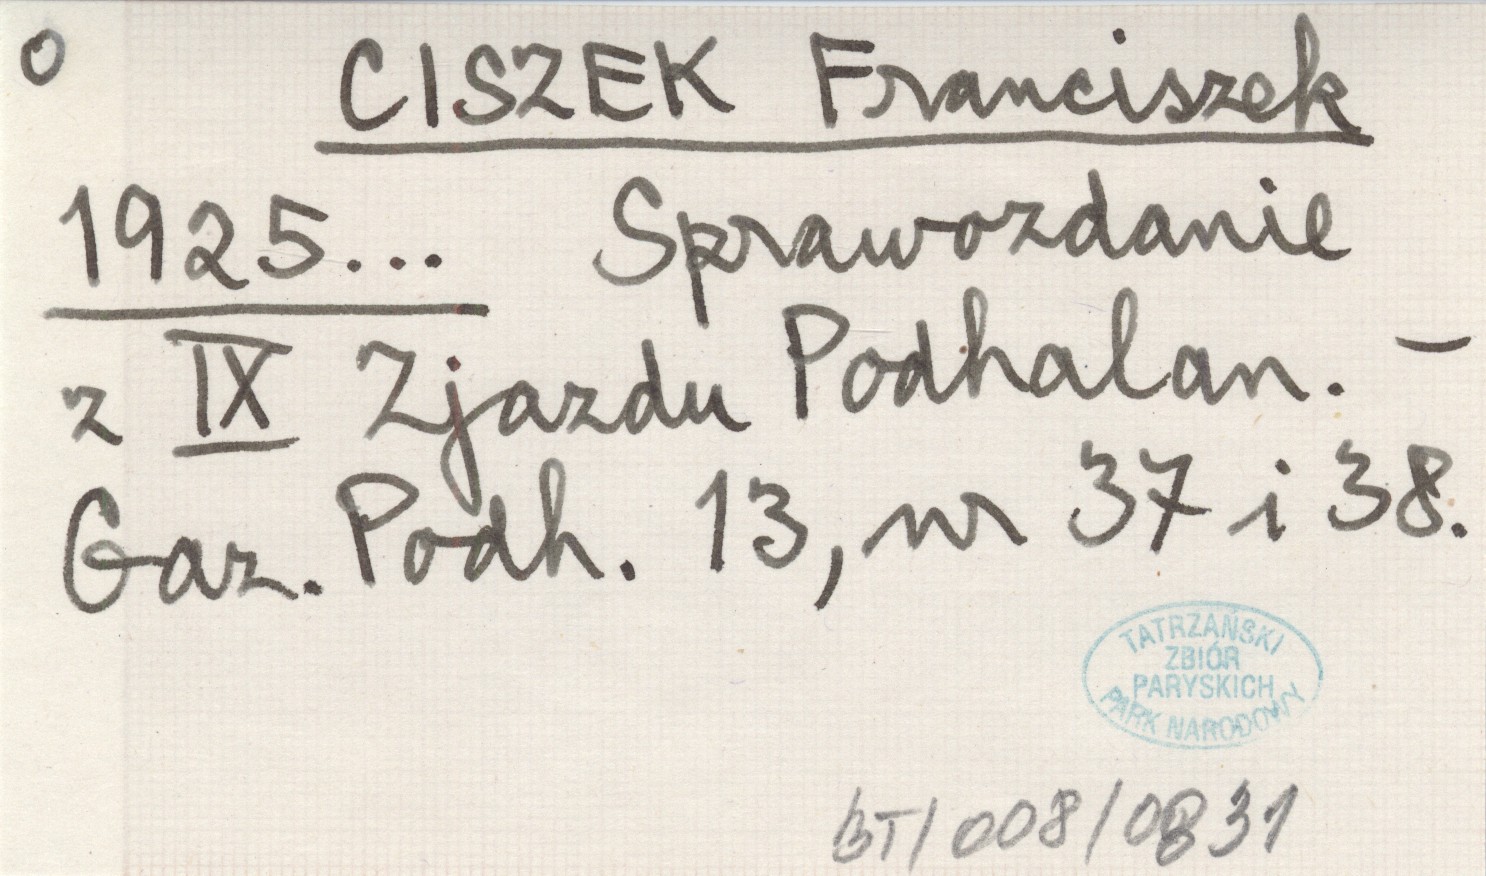 o CISZEK Franciszek
1925... Sprawozdanie
z IX Zjazdu Podhalan. –
Gaz. Podh. 13, nr 37 i 38.
TATRZAŃSKI
ZBIÓR
PARYSKICH
PARK NARODOWY
BT/008/0831